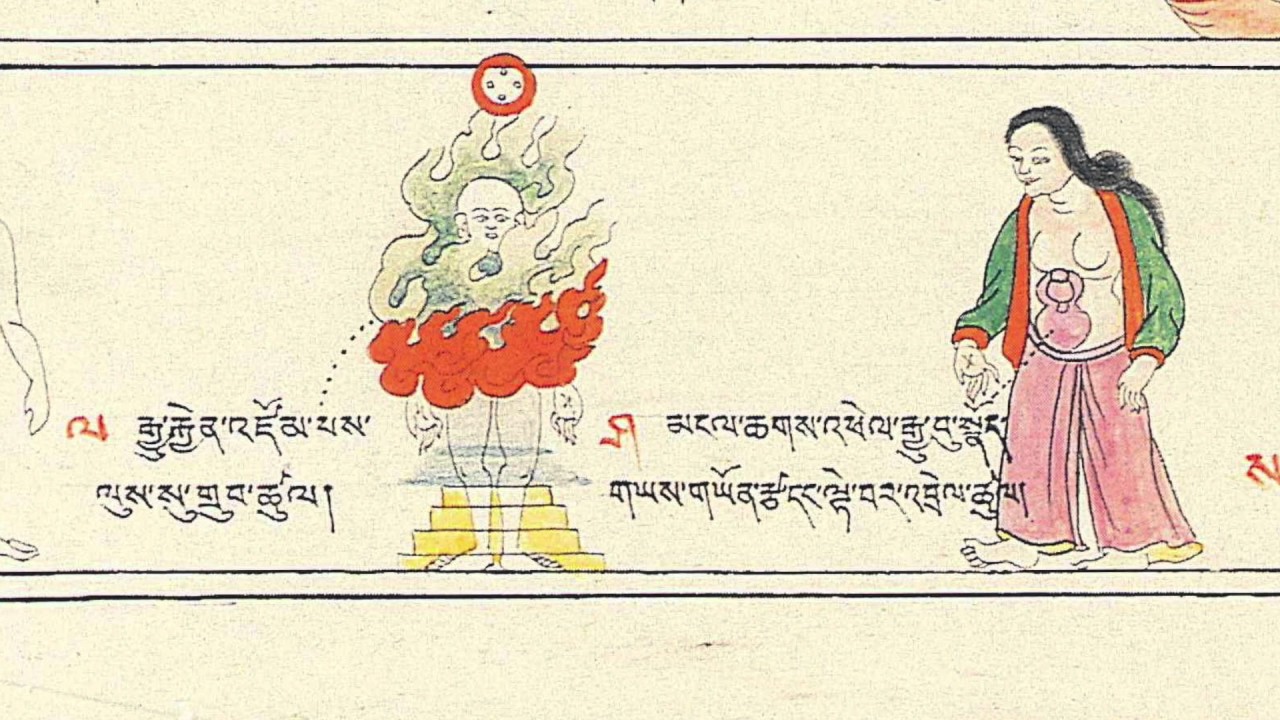 ལ རྒྱུ་རྐྱེན་འཛོམ་པས་
ལུས་སུ་གྲུབ་ཚུལ།
ཤ མངལ་ཆགས་འཕེལ་རྒྱུ་བུ་སྣོད་
གཡས་གཡོན་རྩ་དང་ལྟེ་བར་འབྲེལ་ཚུལ།
ས